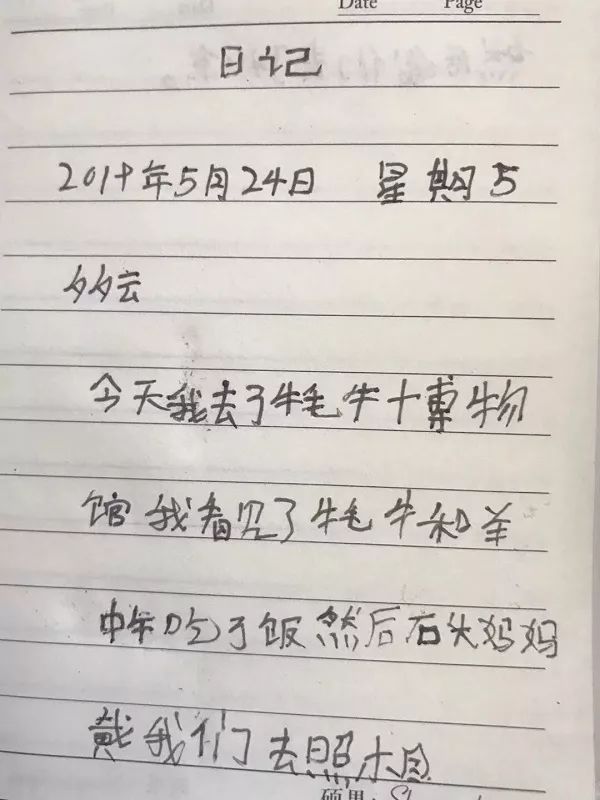 Date Page
日记
2019年5月24日 星期5
多云
今天我去了牦牛博物
馆我看见了牦牛和羊
中午吃了饭然后石头妈妈
戴我们去照相